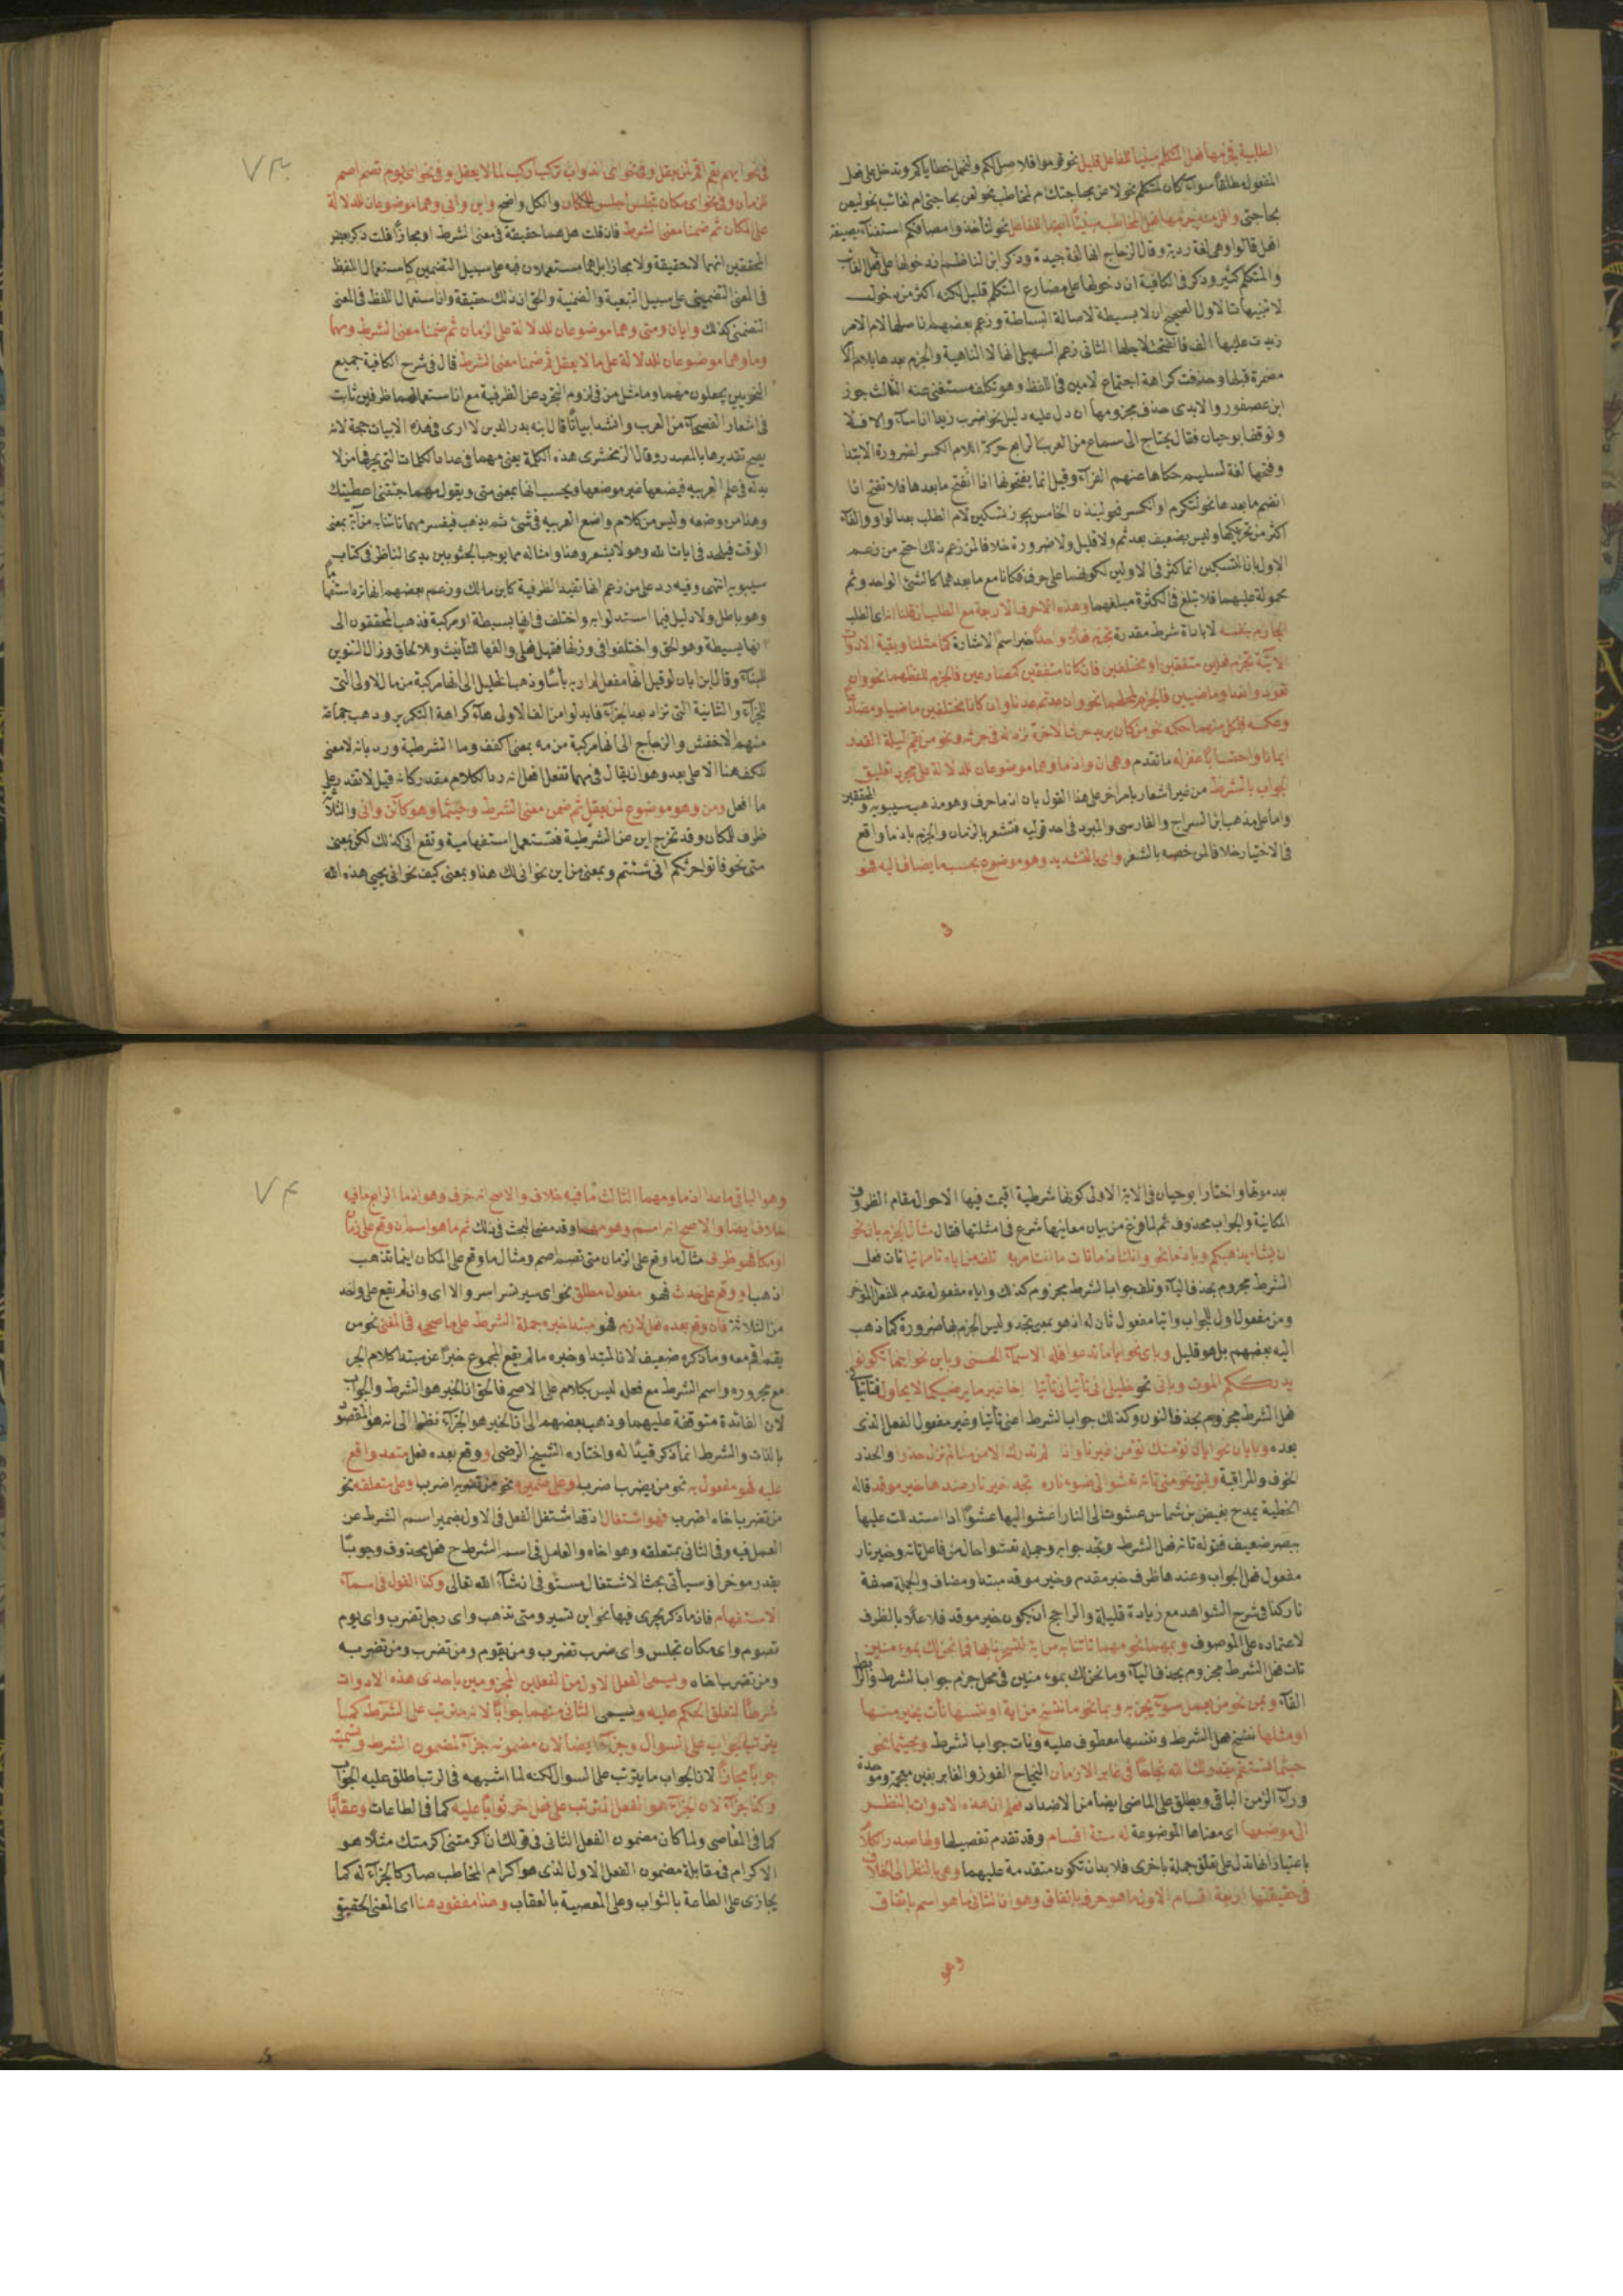 الطلبية في جزمها فعل المتكلم مبنيا للفاعل قليل نحو قوموا فلاصل لكم ولنحمل خطاياكم وتدخل على فعل
المفعول مطلقا سواء كان لمتكلم نحو لاعن بحاجتك ام لمخاطب نحو لتعن بحاجتي ام لغائب نحو ليعن
بحاجتي واقل منه جزمها فعل المخاطب مبنيا ايضا للفاعل نحو لتأخذوا مصافكم استغناء بصيغة
افعل قالوا وهي لغة ردية وقال الزجاج انها لغة جيدة وذكر ابن الناظم ان دخولها على فعل الغائب
والمتكلم كثير وذكر في الكافية ان دخولها على مضارع المتكلم قليل لكنه اكثر من دخول
لا تنبيهات الاول الصحيح ان لا بسيطة لاصالة البساطة وزعم بعضهم ان اصلها لام الامر
زيدت عليها الف فانفتحت لاجلها الثاني زعم السهيلي انها لا النافية والجزم بعدها بلام
مضمرة قبلها وحذفت كراهة اجتماع لامين في اللفظ وهو تكلف مستغنى عنه الثالث جوز
ابن عصفور والابدي حذف مجزومها ان دل عليه دليل نحو اضرب زيدا ان اساء والا فلا
وتوقف ابو حيان فقال يحتاج الى سماع من العرب الرابع حركة اللام الكسر لضرورة الابتدا
وفتحها لغة لسليم حكاها عنهم الفراء وقيل انما يفتحونها اذا انفتح ما بعدها فلا تفتح اذا
انضم ما بعدها نحو لتكرم او انكسر نحو لينذن الخامس يجوز تسكين لام الطلب بعد الواو والفاء
اكثر من تحريكها وليس بضعيف بعد ثم ولا قليل ولا ضرورة خلافا لمن زعم ذلك احتج من زعم
الاول بان التسكين انما كثر في الاولين لكونهما على حرف فكانا مع ما بعدهما كالشئ الواحد وثم
محمولة عليهما فلا تبلغ في الكثرة مبلغهما وهذه الاحرف الاربعة مع الطلب ان قلنا ان اي الطلب
الجازم بنفسه لا باداة شرط مقدرة تجزم فعلا واحدا خبر اسم الاشارة كما مثلنا وبقية الادوات
لاتية تجزم فعلين متفقين او مختلفين فان كانا متفقين كمضارعين فالجزم للفظهما نحو وان
تعودوا نعد وماضيين فالجزم لمحلهما نحو وان عدتم عدنا وان كانا مختلفين ماضيا ومضارعا
وعكسه فلكل منهما حكمه نحو من كان يريد حرث الاخرة نزد له في حرثه ونحو من يقم ليلة القدر
ايمانا واحتسابا غفر له ما تقدم وهي ان واذما وهما موضوعان للدلالة على مجرد تعليق
الجواب بالشرط من غير اشعار بامر اخر على هذا القول بان اذما حرف وهو مذهب سيبويه والمحققين
واما على مذهب ابن السراج والفارسي والمبرد في احد قوليه فتشعر بالزمان والجزم باذما واقع
في الاختيار خلافا لمن خصه بالشعر واي بالتشديد وهو موضوع بحسب ما يضاف اليه فهو
٧٣
في نحو ايهم يقم اقم لمن يعقل وفي نحو اي الدواب تركب اركب لما لا يعقل وفي نحو اي يوم تصم اصم
للزمان وفي نحو اي مكان تجلس اجلس للمكان والكل واضح واين واني وهما موضوعان للدلالة
على المكان ثم ضمنا معنى الشرط فان قلت هل هما حقيقة في معنى الشرط او مجازا قلت ذكر بعض
المحققين انهما لا حقيقة ولا مجازا بل هما مستعملان فيه على سبيل التضمين كاستعمال اللفظ
في المعنى التضمني على سبيل التبعية والضمنية والحق ان ذلك حقيقة وان استعمال اللفظ في المعنى
التضمني كذلك وايان ومتى وهما موضوعان للدلالة على الزمان ثم ضمنا معنى الشرط ومهما
وما وهما موضوعان للدلالة على ما لا يعقل ثم ضمنا معنى الشرط قال في شرح الكافية جميع
النحويين يجعلون مهما وما مثل من في لزوم التجرد عن الظرفية مع ان استعمالهما ظرفين ثابت
في اشعار الفصحاء من العرب وانشد ابياتا قال ابنه بدر الدين لا ارى في هذه الابيات حجة لانه
يصح تقديرها بالمصدر وقال الزمخشري هذه الكلمة يعني مهما في عداد الكلمات التي يحرفها من لا
يد له في علم العربيه فيضعها غير موضعها ويحسب انها بمعنى متى ويقول مهما جئتني اعطيتك
وهذا من وضعه وليس من كلام واضع العربيه في شئ ثم يذهب فيفسر مهما تاتنا به من آية بمعنى
الوقت فيلحد في ايات الله وهو لا يشعر وهذا وامثاله مما يوجب الجثو بين يدي الناظر في كتاب
سيبويه انتهى وفيه رد على من زعم انها تفيد الظرفية كابن مالك وزعم بعضهم انها ترد استفهاما
وهو باطل ولا دليل فيما استدلوا به واختلف في انها بسيطة او مركبة فذهب المحققون الى
انها بسيطة وهو الحق واختلفوا في وزنها فقيل فعلى والفها للتأنيث وللالحاق وزال التنوين
للبناء وقال ابن اياز لو قيل انها مفعل لم ار به بأسا وذهب الخليل الى انها مركبة من ما الاولى التي
للجزاء والثانية التي تزاد بعد الجزاء فابدلوا من الف الاولى هاء كراهة التكرير وذهب جماعة
منهم الاخفش والزجاج الى انها مركبة من مه بمعنى اكفف وما الشرطية ورد بانه لا معنى
للكف هنا الا على بعد وهو ان يقال في مهما تفعل افعل انه رد الكلام مقدر كانه قيل لا تقدر على
ما افعل ومن وهو موضوع لمن يعقل ثم ضمن معنى الشرط وحيثما وهو كاين واني والثلاثة
ظرف للكان وقد تخرج اين عن الشرطية فتستعمل استفهامية وتقع انى كذلك لكن بمعنى
متى نحو فاتوا حرثكم انى شئتم وبمعنى من اين نحو انى لك هذا وبمعنى كيف نحو انى يحيي هذه الله
بعد موتها واختار ابو حيان في الاية الاولى كونها شرطية اقيمت فيها الاحوال مقام الظروف
المكانية والجواب محذوف ثم لما فرغ من بيان معانيها شرع في امثلتها فقال مثال الجزم بان نحو
ان يشاء يذهبكم وباذما نحو وانك اذما تات ما انت امر به تلف من اياه تامر اتيا تات فعل
الشرط مجزوم بحذف الياء وتلف جواب الشرط مجزوم كذلك واياه مفعول مقدم للفعل المؤخر
ومن مفعول اول للجواب واتيا مفعول ثان له اذ هو بمعنى تجد وليس الجزم بها ضرورة كما ذهب
اليه بعضهم بل هو قليل وباي نحو اياما تدعوا فله الاسماء الحسنى وباين نحو اينما تكونوا
يدرككم الموت وباني نحو خليلي انى تأتياني تأتيا اخا غير ما يرضيكما لا يحاول فتأتياني
فعل الشرط مجزوم بحذف النون وكذلك جواب الشرط اعني تأتيا وغير مفعول الفعل الذي
بعده وبايان نحو ايان نؤمنك تؤمن غيرنا واذا لم تدرك الامن منا لم تزل حذرا والحذر
الخوف والمراقبة وبمتى نحو متى تاته تعشو الى ضوء ناره تجد خير نار عندها خير موقد قاله
الحطيئة يمدح بغيض بن شماس عشوت الى النار اعشو اليها عشوا اذا استدللت عليها
ببصر ضعيف فقوله تاته فعل الشرط وتجد جوابه وجملة تعشو حال من فاعل تاته وخير نار
مفعول فعل الجواب وعندها ظرف خبر مقدم وخير موقد مبتدا ومضاف والجملة صفة
نار كذا في شرح الشواهد مع زيادة قليلة والراجح ان يكون خير موقد فاعلا بالظرف
لاعتماده على الموصوف وبمهما نحو مهما تاتنا به من اية لتسحرنا بها فما نحن لك بمؤمنين
تات فعل الشرط مجزوم بحذف الياء وما نحن لك بمؤمنين في محل جزم جواب الشرط والرابط
الفاء وبمن نحو من يعمل سوءا يجز به وبما نحو ما ننسخ من اية او ننسها نأت بخير منها
او مثلها ننسخ فعل الشرط وننسها معطوف عليه ونات جواب الشرط وبحيثما نحو
حيثما تستقم يقدر لك الله نجاحا في غابر الازمان النجاح الفوز والغابر بغين معجمة وموحدة
وراء الزمن الباقي ويطلق على الماضي ايضا من الاضداد فعلم ان هذه الادوات بالنظر
الى موضعها اي معناها الموضوعة له ستة اقسام وقد تقدم تفصيلها ولها صدر الكلام
باعتبار انها تدل على تعلق جملة باخرى فلا بد ان تكون متقدمة عليهما وهي بالنظر الى الخلاف
في حقيقتها اربعة اقسام الاول ما هو حرف باتفاق وهو ان الثاني ما هو اسم باتفاق
وهو
٧٤
وهو الباقي ما عدا اذما ومهما الثالث ما فيه خلاف والاصح انه حرف وهو اذما الرابع ما فيه
خلاف ايضا والاصح انه اسم وهو مهما وقد مضى البحث في ذلك ثم ما هو اسم ان وقع على زمان
او مكان فهو ظرف مثال ما وقع على الزمان متى تصم اصم ومثال ما وقع على المكان اينما تذهب
اذهب او وقع على حدث فهو مفعول مطلق نحو اي سير تسر اسر والا اي وان لم يقع على واحد
من الثلاثة فان وقع بعده فعل لازم فهو مبتدا خبره جملة الشرط على ما صححه في المغنى نحو من
يقم اقم معه وما ذكره ضعيف لان المبتدا وخبره ما لم يقع المجموع خبرا عن مبتدا كلام الجر
مع مجروره واسم الشرط مع فعله ليس بكلام على الاصح فالحق ان الخبر هو الشرط والجواب
لان الفائدة متوقفة عليهما وذهب بعضهم الى ان الخبر هو الجزاء نظرا الى انه هو المقصود
بالذات والشرط انما ذكر قيدا له واختاره الشيخ الرضي او وقع بعده فعل متعد واقع
عليه فهو مفعول به نحو من يضرب اضرب او على ضميره نحو من تضربه اضرب وعلى متعلقه نحو
من تضرب اخاه اضرب فهو اشتغال اذ قد اشتغل الفعل في الاول بضمير اسم الشرط عن
العمل فيه وفي الثاني بمتعلقه وهو اخاه والعامل في اسم الشرط ح فعل محذوف وجوبا
يقدر موخرا وسيأتي بحث الاشتغال مستوفى انشاء الله تعالى وكذا القول في اسماء
الاستفهام فان ما ذكر يجري فيها نحو اين تسير ومتى تذهب واي رجل تضرب واي يوم
تصوم واي مكان تجلس واي ضرب تضرب ومن يقوم ومن تضرب ومن تضربه
ومن تضرب اخاه ويسمى الفعل الاول من الفعلين المجزومين باحدى هذه الادوات
شرطا لتعلق الحكم عليه ويسمى الثاني منهما جوابا لانه مترتب على الشرط كما
يترتب الجواب على السوال وجزاء ايضا لان مضمونه جزاء لمضمون الشرط وتسميته
جوابا مجازا لان الجواب ما يترتب على السوال لكنه لما اشبهه في الرتب اطلق عليه الجواب
وكذا جزاء لان الجزاء هو الفعل المترتب على فعل اخر ثوابا عليه كما في الطاعات وعقابا
كما في المعاصي ولما كان مضمون الفعل الثاني في قولك ان اكرمتني اكرمتك مثلا هو
الاكرام في مقابلة مضمون الفعل الاول الذي هو اكرام المخاطب صار كالجزاء له كما
يجازى على الطاعة بالثواب وعلى المعصية بالعقاب وهذا مفقود هنا اي المعنى الحقيقي